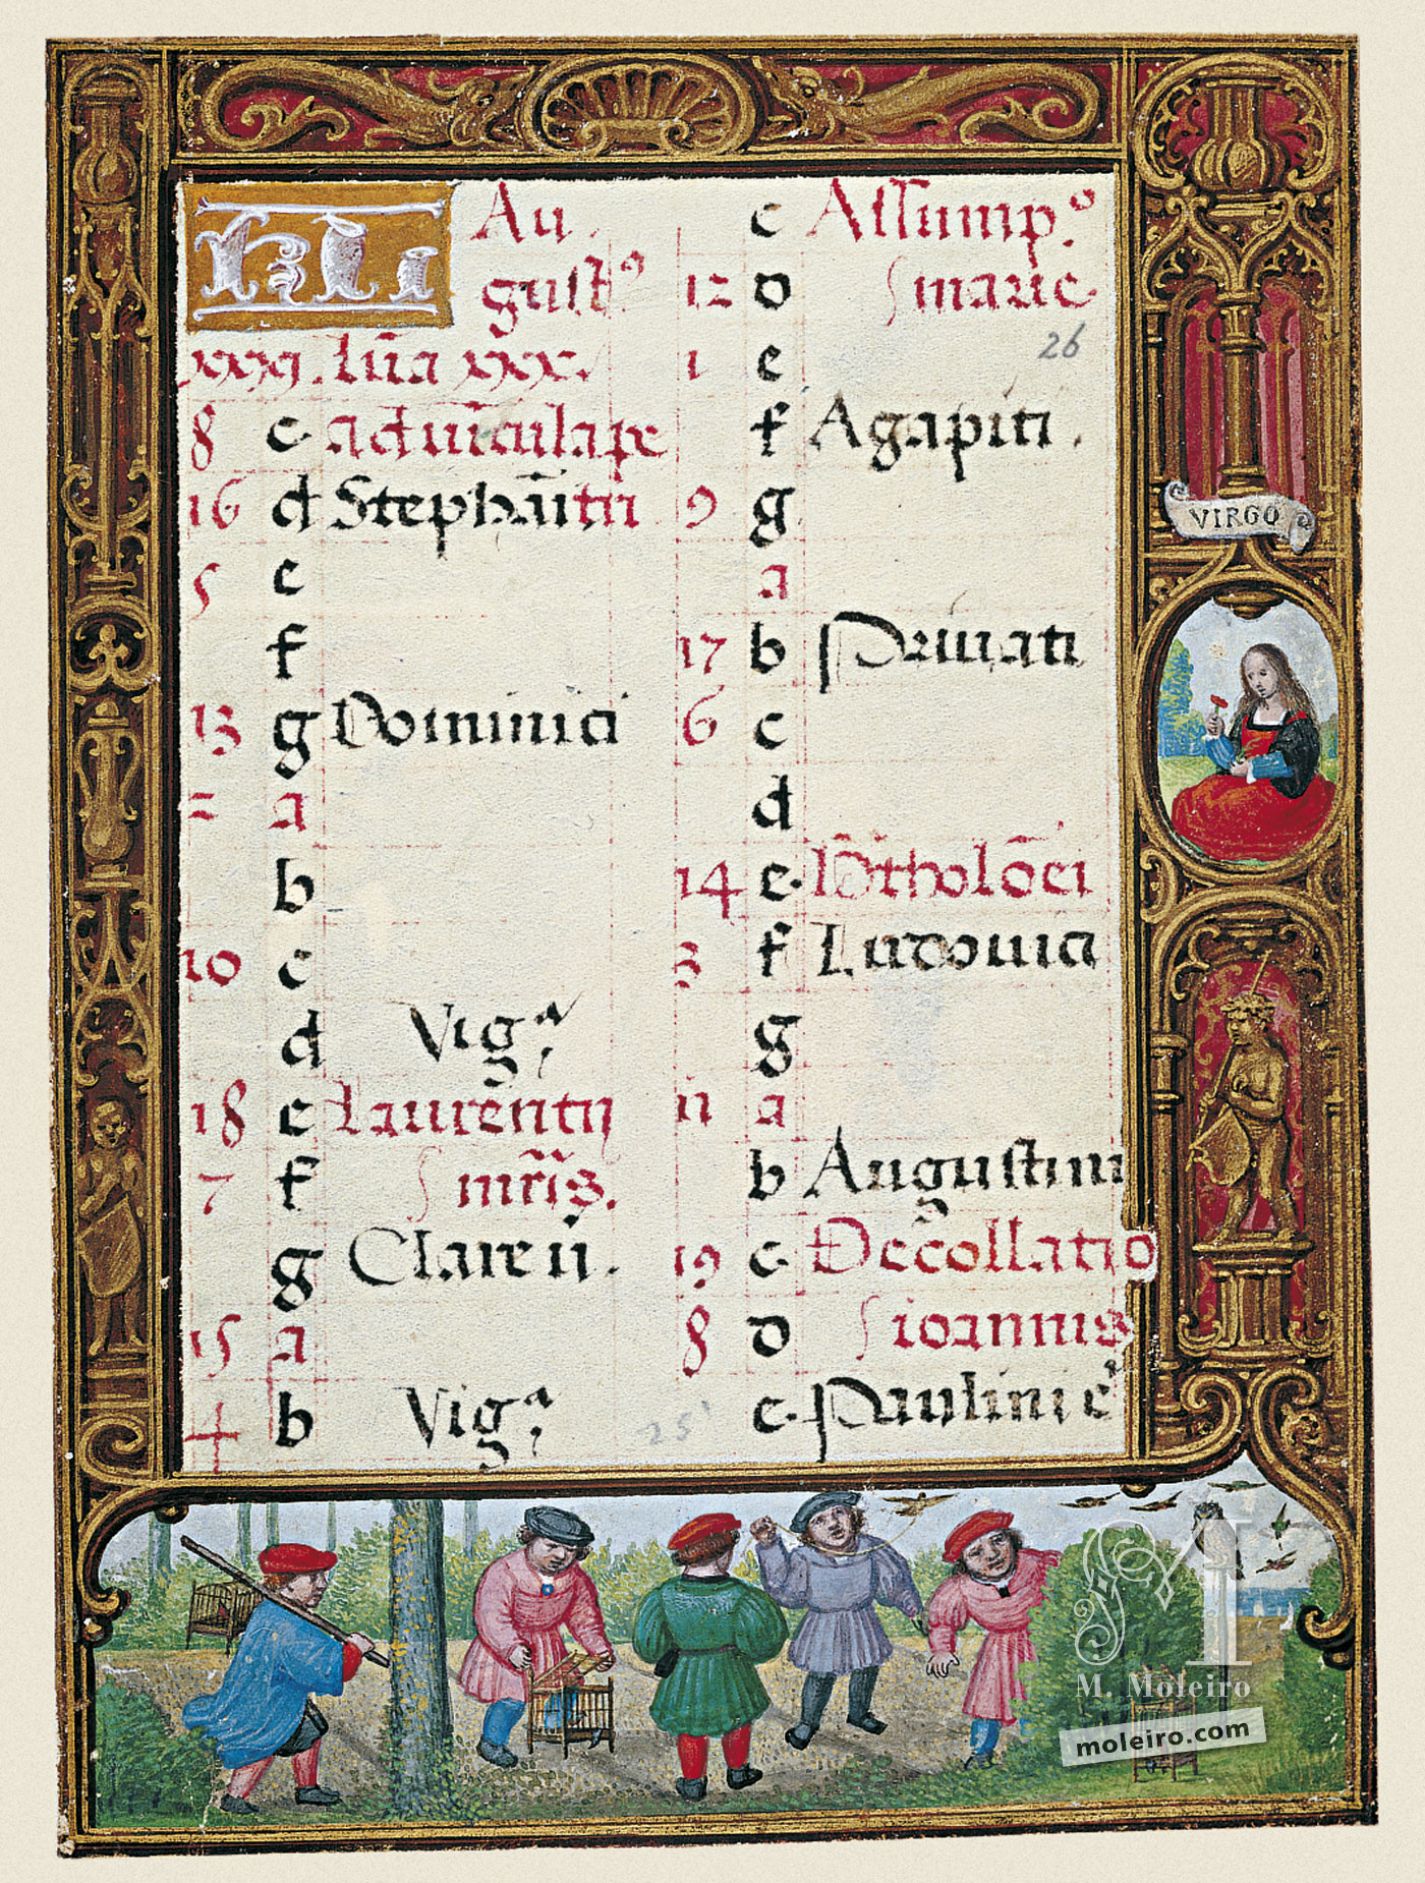 KL Au
gustꝰ
xxxj. Lūa xxx.
8 c. ad vīcula pe
16 d Stephāi ṗṗ
5 e
f
13 g Dominici
= a
b
10 c
d Vigᵃ.
18 e Laurentij
7 f mr̄is.
g Clare ii.
15 a
4 b Vigᵃ.
c Assump.º
12 d marie.
26
1 e
f Agapiti.
9 g
a
17 b Privati
6 c
d
14 e. Br̄tholōei
3 f Ludovici
g
11 a
b Augustini
19 c. Decollatio
8 d ioannis
e. Paulini e
25
VIRGO
M. Moleiro
moleiro.com